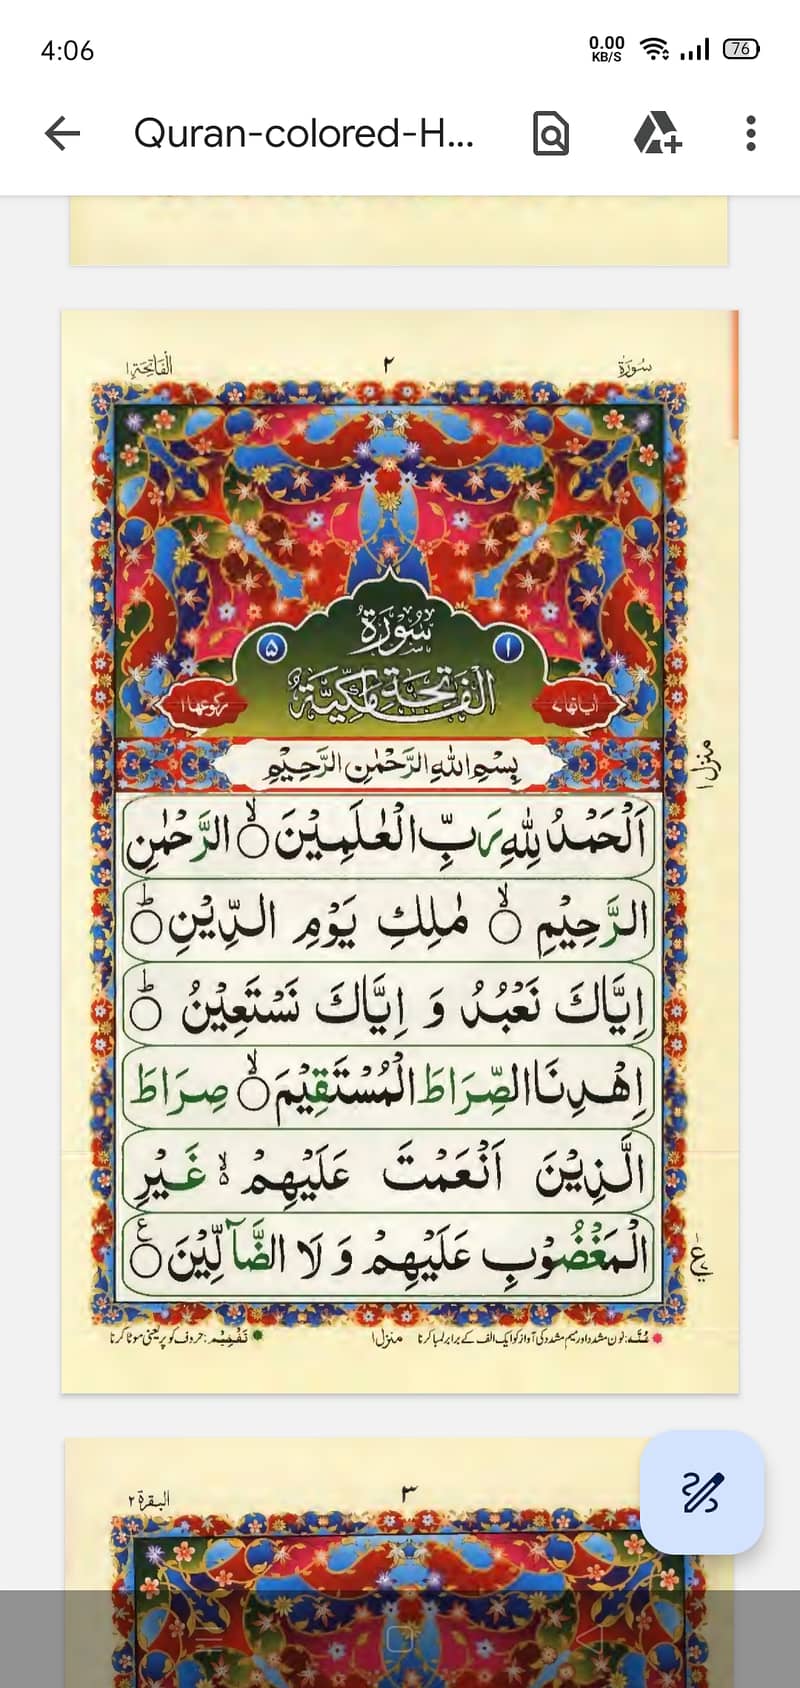 4:06
0.00 KB/S
76
Quran-colored-H...
سُورَةُ ٢ الْفَاتِحَة ١
سُوْرَةُ
٥ ١
الْفَاتِحَةِ مَكِّيَّةٌ
اٰیاتها ٧ رکوعها ١
بِسْمِ اللّٰهِ الرَّحْمٰنِ الرَّحِيْمِ
منزل ١
اَلْحَمْدُ لِلّٰهِ رَبِّ الْعٰلَمِيْنَ ۙ الرَّحْمٰنِ
الرَّحِيْمِ ۙ مٰلِكِ يَوْمِ الدِّيْنِ ؕ
اِيَّاكَ نَعْبُدُ وَ اِيَّاكَ نَسْتَعِيْنُ ؕ
اِهْدِنَا الصِّرَاطَ الْمُسْتَقِيْمَ ۙ صِرَاطَ
الَّذِيْنَ اَنْعَمْتَ عَلَيْهِمْ ۙ غَيْرِ
الْمَغْضُوْبِ عَلَيْهِمْ وَ لَا الضَّآلِّيْنَ ع
ع
غُنَّہ: نون مشدد اور میم مشدد کی آواز کو ایک الف کے برابر لمبا کرنا منزل ١ تَفْخِیْم: حروف کو پر یعنی موٹا کرنا
٣ البقرة ٢